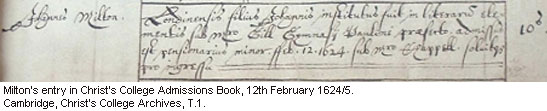 Johannes Milton.
Londinensis filius Johannis institutus fuit in literarum ele-
mentis sub Mro Gill Gymnasij Paulini præfecto. admissus
est pensionarius minor. feb. 12. 1624 sub Mro Chappell. solvitque
pro ingressu
10s
Milton's entry in Christ's College Admissions Book, 12th February 1624/5.
Cambridge, Christ's College Archives, T.1.